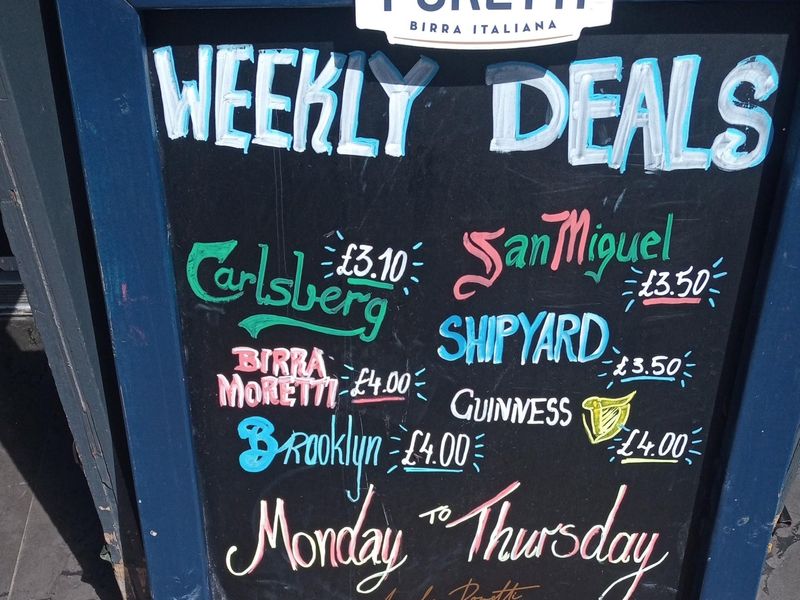 BIRRA ITALIANA
WEEKLY DEALS
Carlsberg £3.10
San Miguel £3.50
BIRRA MORETTI £4.00
SHIPYARD £3.50
Brooklyn £4.00
GUINNESS £4.00
Monday TO Thursday